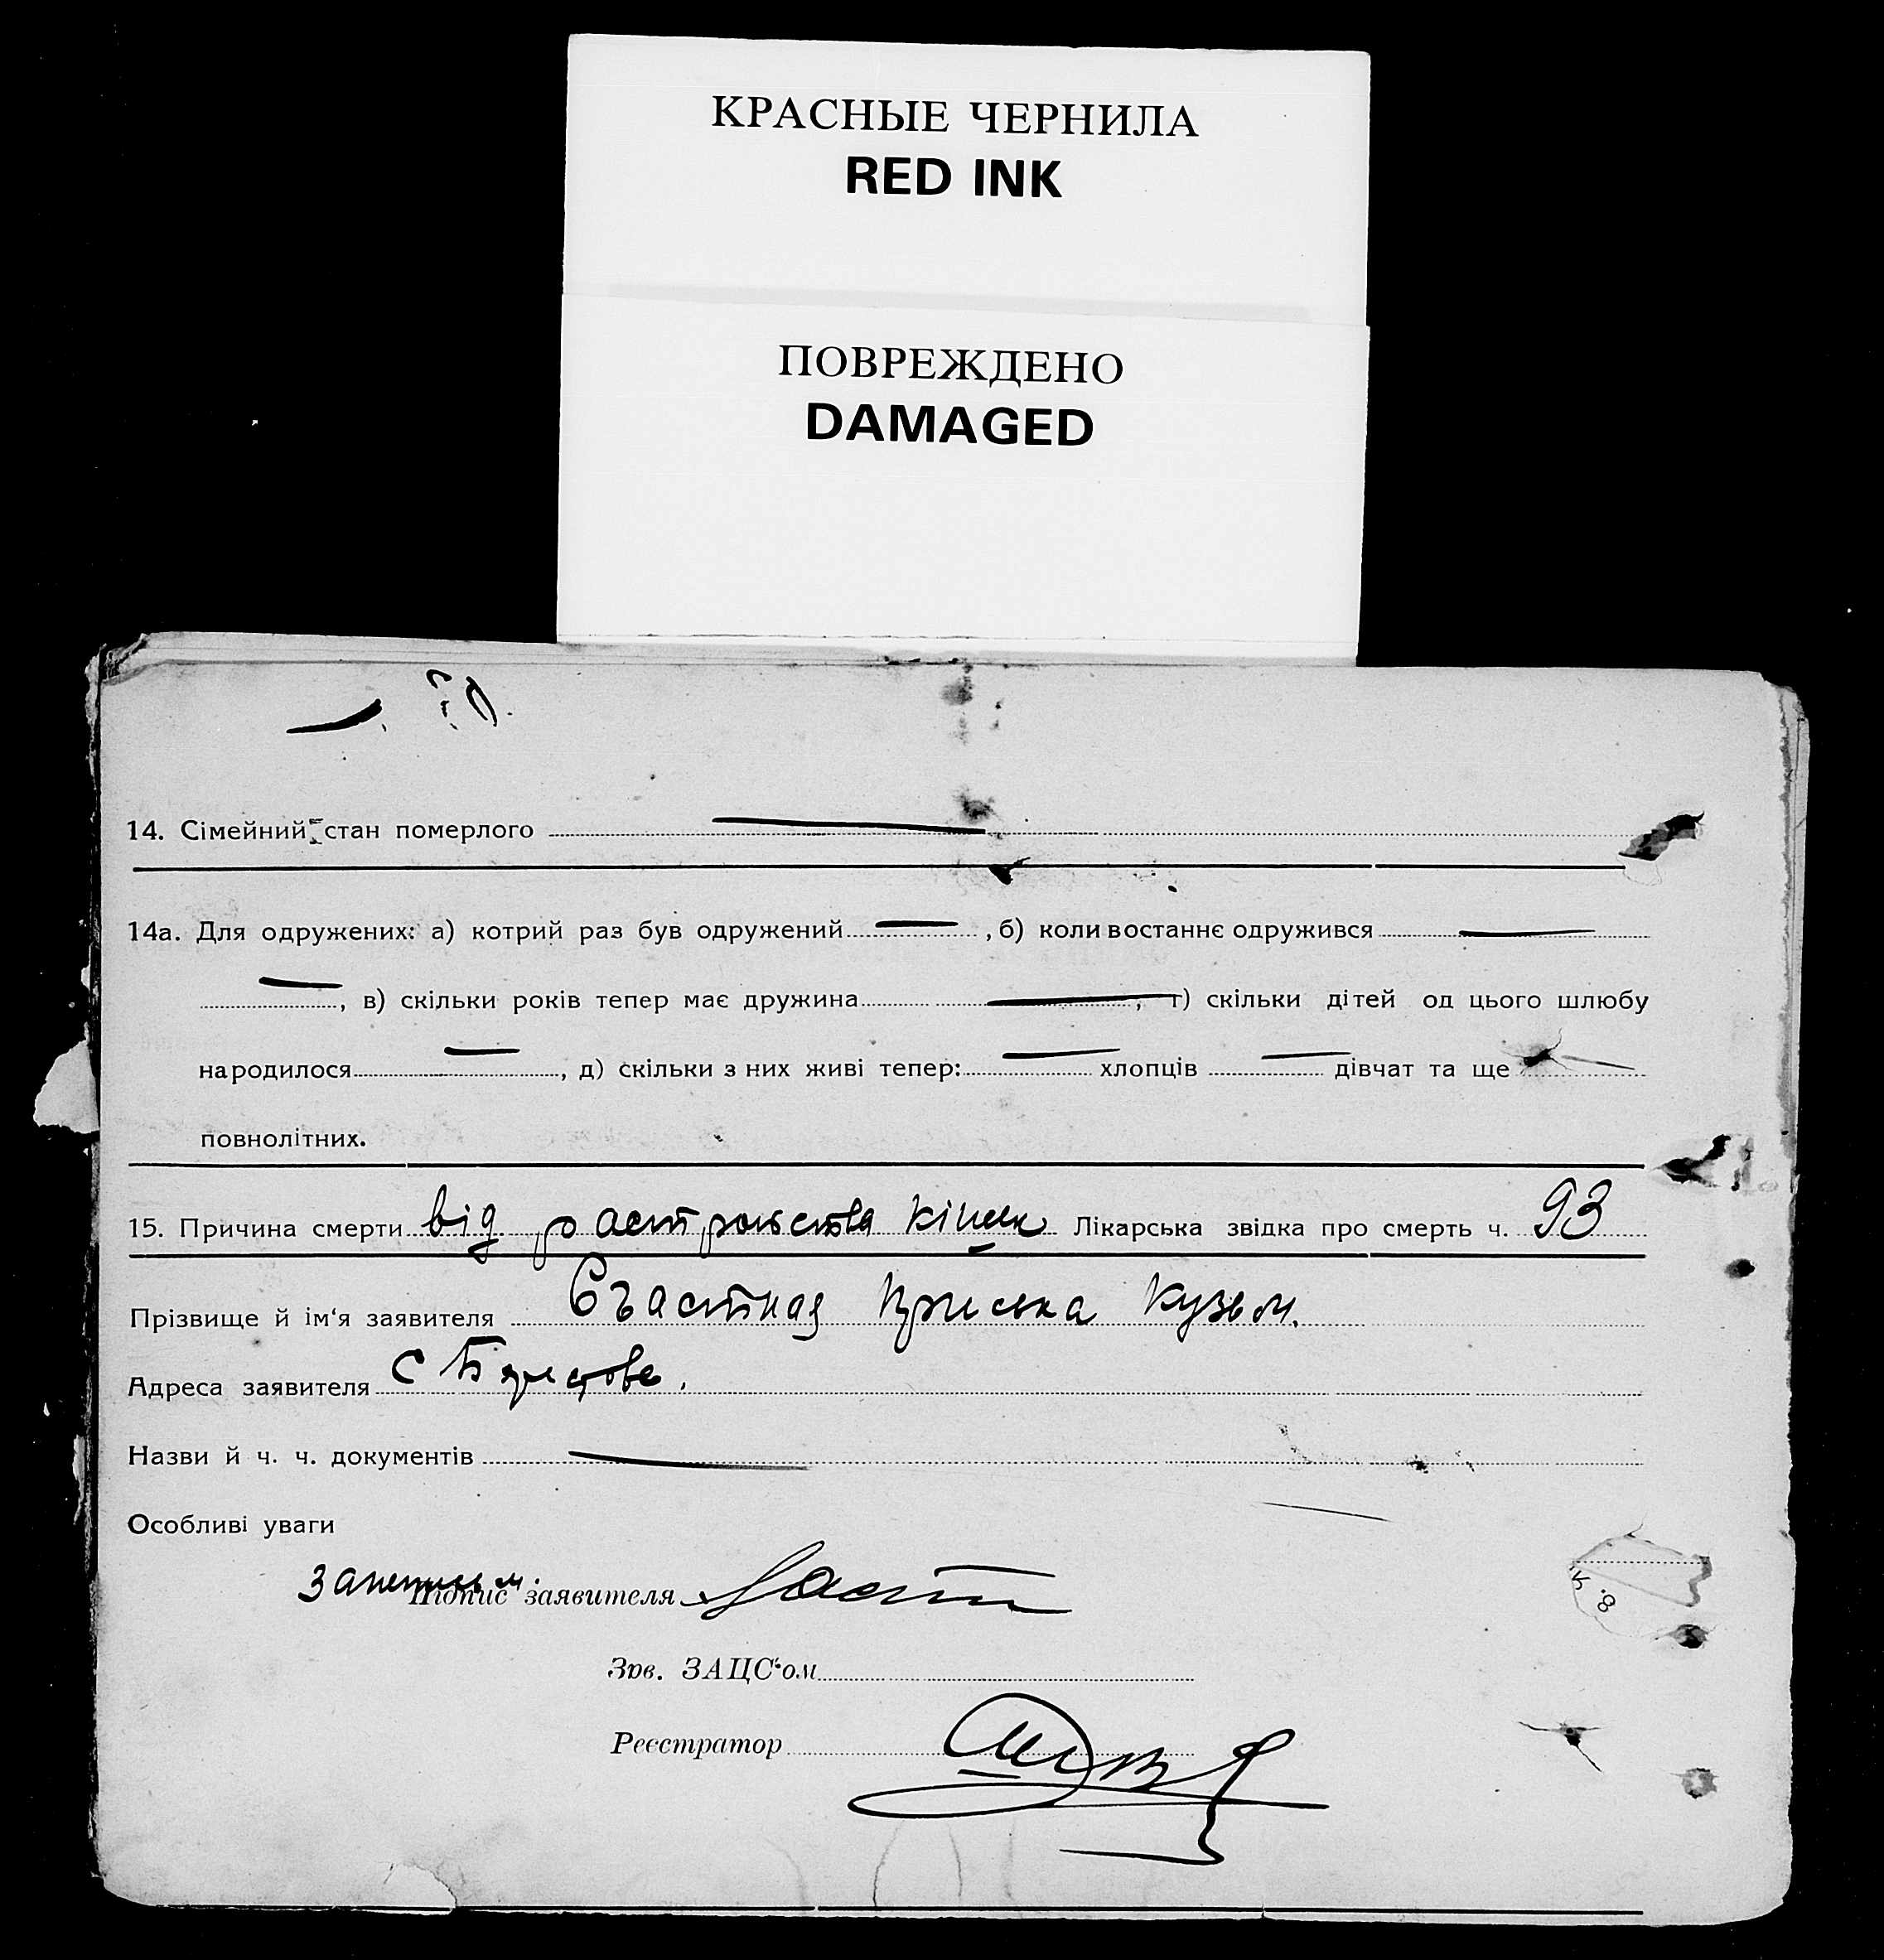 КРАСНЫЕ ЧЕРНИЛА
RED INK
ПОВРЕЖДЕНО
DAMAGED
14. Сімейний стан померлого
14а. Для одружених: а) котрий раз був одружений , б) коли востаннє одружився
, в) скільки років тепер має дружина , г) скільки дітей од цього шлюбу
народилося , д) скільки з них живі тепер: хлопців дівчат та ще
повнолітних.
15. Причина смерти від растройства кішек Лікарська звідка про смерть ч. 93
Прізвище й ім'я заявителя Счастная Приська Кузьм.
Адреса заявителя С
Назви й ч. ч. документів
Особливі уваги
Підпис заявителя
Зав. ЗАЦС'ом
Реєстратор